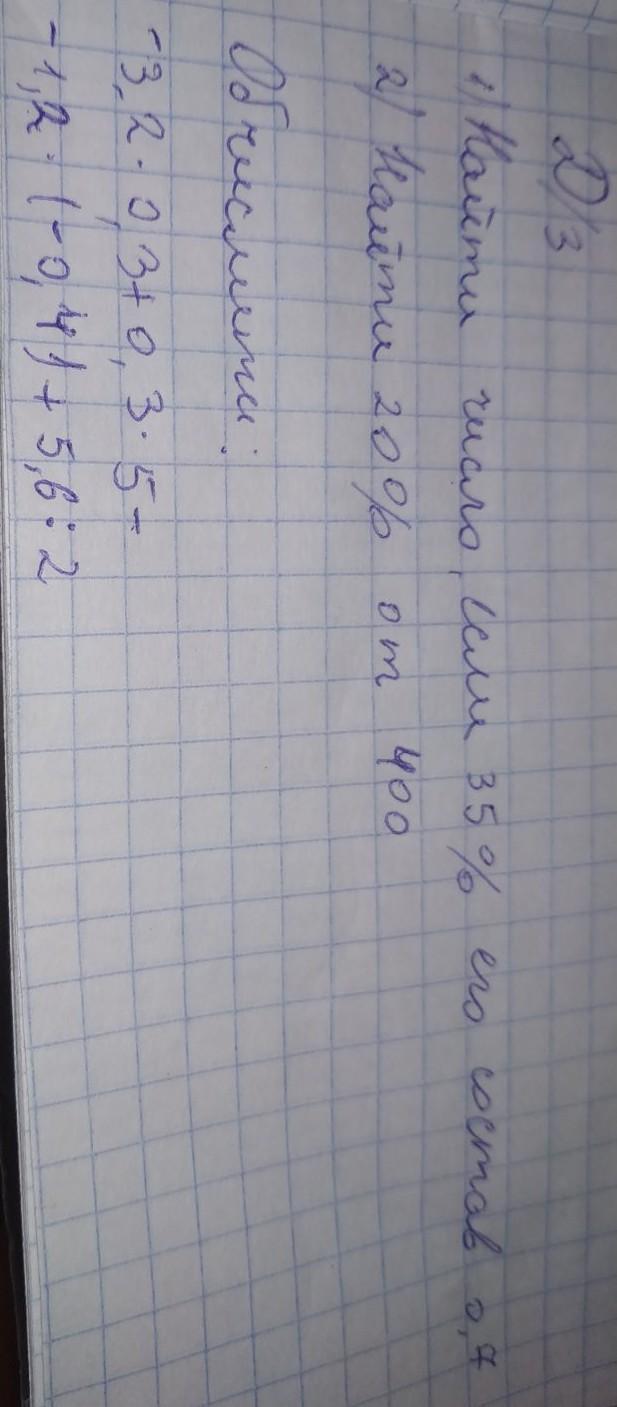 Д/З
1) Найти число, если 35% его состав 0,7
2) Найти 20% от 400
Обчислити:
-3,2·0,3+0,3·5-
-1,2·(-0,4)+5,6:2